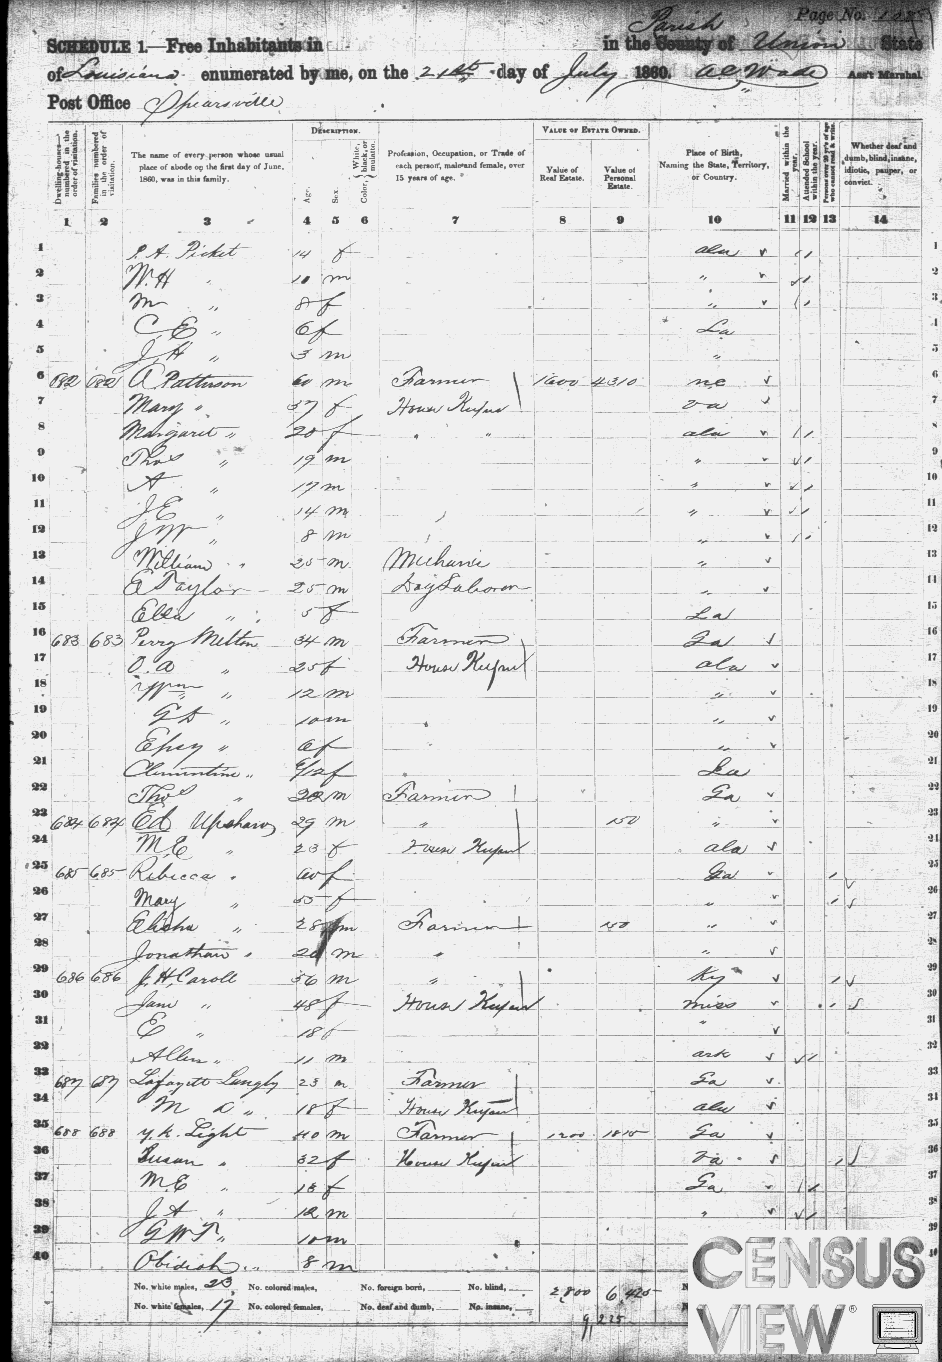 Page No.
SCHEDULE 1.—Free Inhabitants in in the County of Parish Union State
of Louisiana enumerated by me, on the 21st day of July 1860. Wade Ass't Marshal
Post Office Spearsville
Dwelling-houses—numbered in the order of visitation.
Families numbered in the order of visitation.
The name of every person whose usual place of abode on the first day of June, 1860, was in this family.
DESCRIPTION.
Age.
Sex.
Color, White, black, or mulatto.
Profession, Occupation, or Trade of each person, male and female, over 15 years of age.
VALUE OF ESTATE OWNED.
Value of Real Estate.
Value of Personal Estate.
Place of Birth, Naming the State, Territory, or Country.
Married within the year.
Attended School within the year.
Persons over 20 y'rs of age who cannot read & write.
Whether deaf and dumb, blind, insane, idiotic, pauper, or convict.
1 2 3 4 5 6 7 8 9 10 11 12 13 14
1 Picket 14 f ala
2 W. H " 10 m "
3 M " 8 f "
4 C. E " 6 f La
5 J. H " 3 m "
6 682 682 A Patterson 60 m Farmer 1600 4310 nc
7 Mary " 57 f House Keeper va
8 Margaret " 20 f " " ala
9 Thos " 19 m "
10 A " 17 m "
11 J E " 14 m "
12 J W " 8 m "
13 William " 25 m Mechanic "
14 E Taylor 25 m Day Laborer "
15 Ella " 5 f La
16 683 683 Perry Melton 34 m Farmer Ga
17 O. A " 25 f House Keeper ala
18 " 12 m "
19 G D " 10 m "
20 Epsey " 6 f "
21 Clementine " /12 f La
22 Thos " 22 m Farmer Ga
23 684 684 Ed Upshaw 29 m " 150 "
24 M. E " 23 f House Keeper ala
25 685 685 Rebecca " 60 f Ga
26 Mary " 55 f "
27 Elisha " 28 m Farmer 150 "
28 Jonathan " 20 m " "
29 686 686 J. H. Caroll 56 m " Ky
30 Jane " 48 f House Keeper miss
31 E " 18 f "
32 Allen " 11 m ark
33 687 687 Lafayett Langly 23 m Farmer Ga
34 M a " 18 f House Keeper ala
35 688 688 Y. K. Light 40 m Farmer 1200 1815 Ga
36 Susan " 32 f House Keeper Va
37 M E " 13 f Ga
38 J A " 12 m "
39 G W T " 10 m
40 Obidiah " 8 m
No. white males, 23 No. colored males, No. foreign born, No. blind, 2,800 6,425 No.
No. white females, 17 No. colored females, No. deaf and dumb, No. insane, No.
9,225
CENSUS
VIEW ®